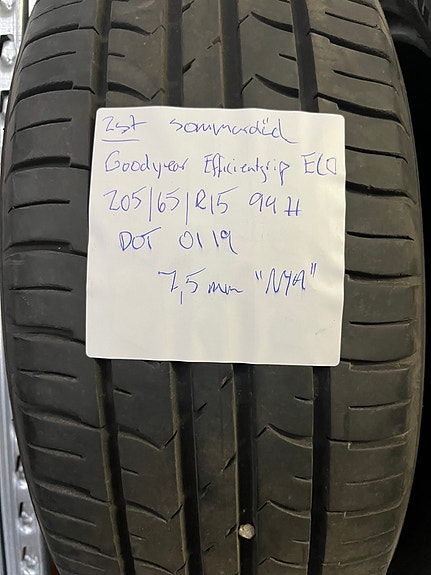 2st sommardäck
Goodyear Efficientgrip ECO
205/65/R15 94 H
DOT 0119
7,5 mm "NYA"